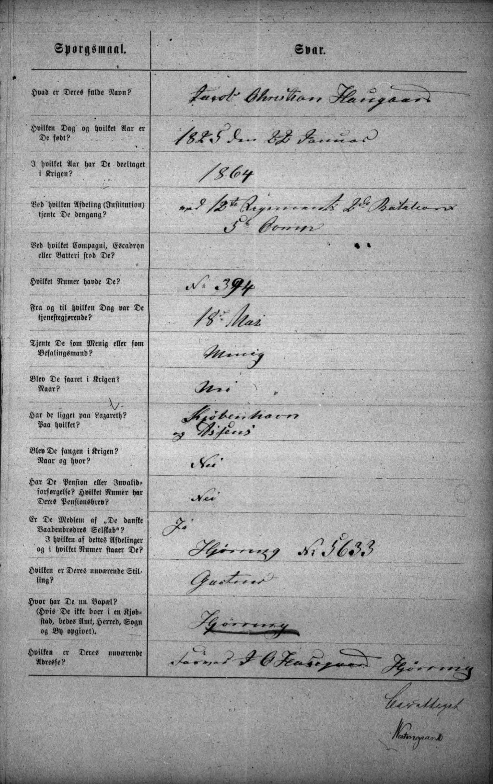 Spørgsmaal. Svar.
Hvad er Deres fulde Navn? Jacob Christian Haugaard
Hvilken Dag og hvilket Aar er
De født? 1825 den 22 Januar
I hvilket Aar har De deeltaget
i Krigen? 1864
Ved hvilken Afdeling (Institution)
tjente De dengang? ved 12te Regiments 2den Batalion
5te Comp
Ved hvilket Compagni, Escadron
eller Batteri stod De?
Hvilket Numer havde De? No 394
Fra og til hvilken Dag var De
tjenestegjørende? 18de Mai
Tjente De som Menig eller som
Befalingsmand? Menig
Blev De saaret i Krigen?
Naar? Nei
Har De ligget paa Lazareth?
Paa hvilket? Kjøbenhavn
og Assens
Blev De fangen i Krigen?
Naar og hvor? Nei
Har De Pension eller Invalid-
forsørgelse? Hvilket Numer har
Deres Pensionsbrev? Nei
Er De Medlem af „De danske
Vaabenbrødres Selskab"? Ja
I hvilken af dettes Afdelinger
og i hvilket Numer staaer De? Hjørring No 5633
Hvilken er Deres nuværende Stil-
ling?
Hvor har De nu Bopæl?
(Hvis De ikke boer i en Kjøb-
stad, bedes Amt, Herred, Sogn
og By opgivet). Hjørring
Hvilken er Deres nuværende
Adresse? J C Haugaard Hjørring